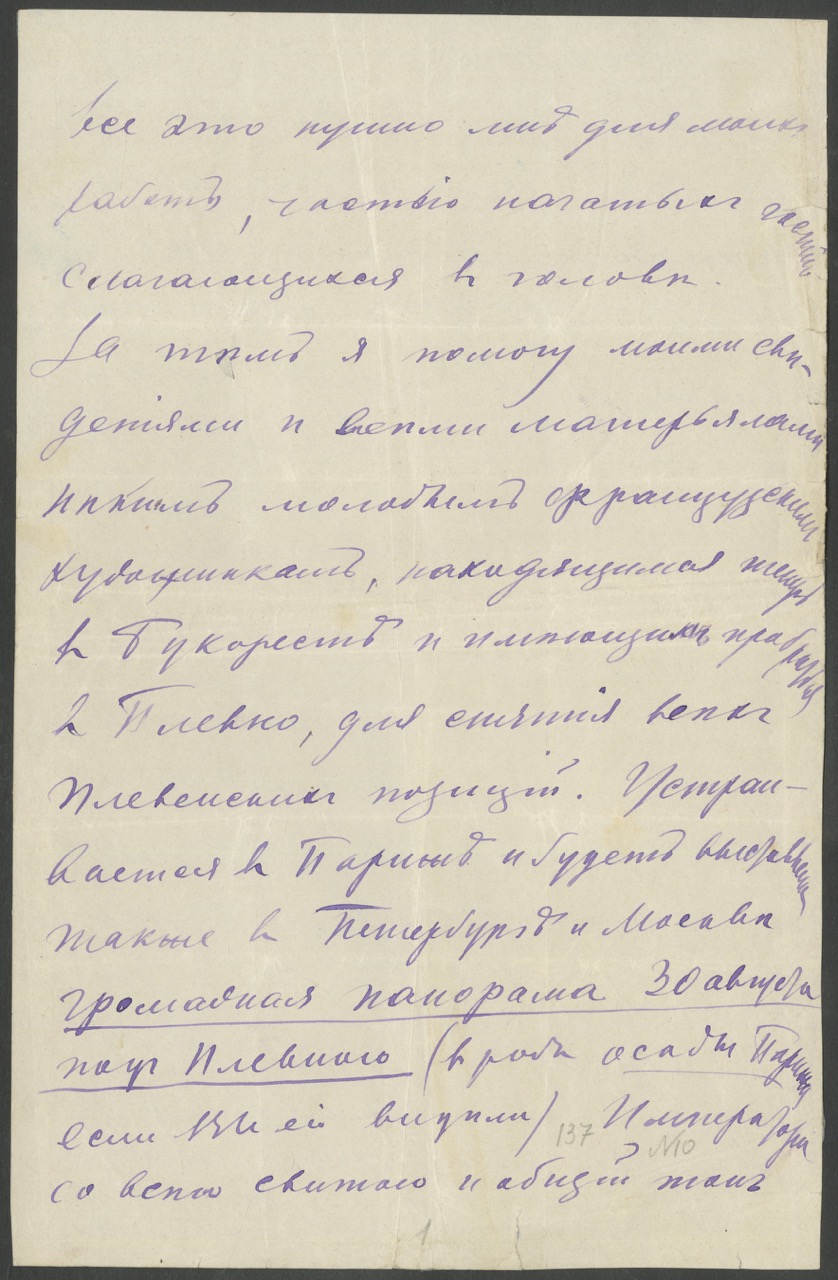 все это нужно мнѣ для моихъ
работъ, частію начатыхъ частію
слагающихся въ головѣ.
За тѣмъ я помогу моими свѣ-
деніями и всѣми матерьялами
нѣкимъ молодымъ французскимъ
художникамъ, находящимся теперь
въ Букарестѣ и имѣющимъ прибыть
въ Плевно, для снятія всѣхъ
Плевенскихъ позицій. Устраи-
вается въ Парижѣ и будетъ выставлена
также въ Петербургѣ и Москвѣ
громадная панорама 30 августа
подъ Плевною (въ родѣ осады Парижа
если Вы ей видѣли) Императоръ
со всею свитою и общій планъ
137 N10
1